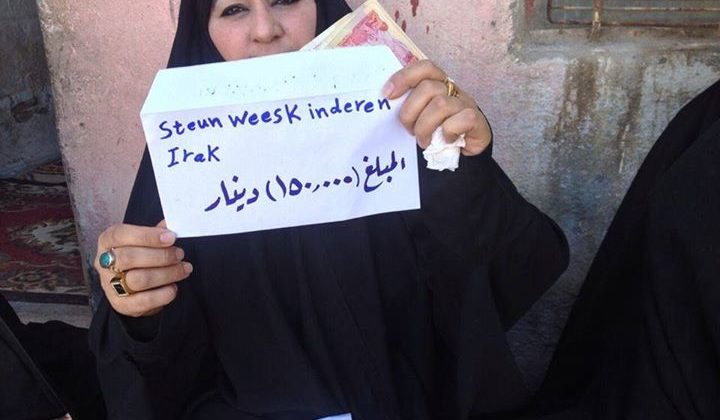 Steun Weesk inderen
Irak
المبلغ (١٥٠,٠٠٠) دينار